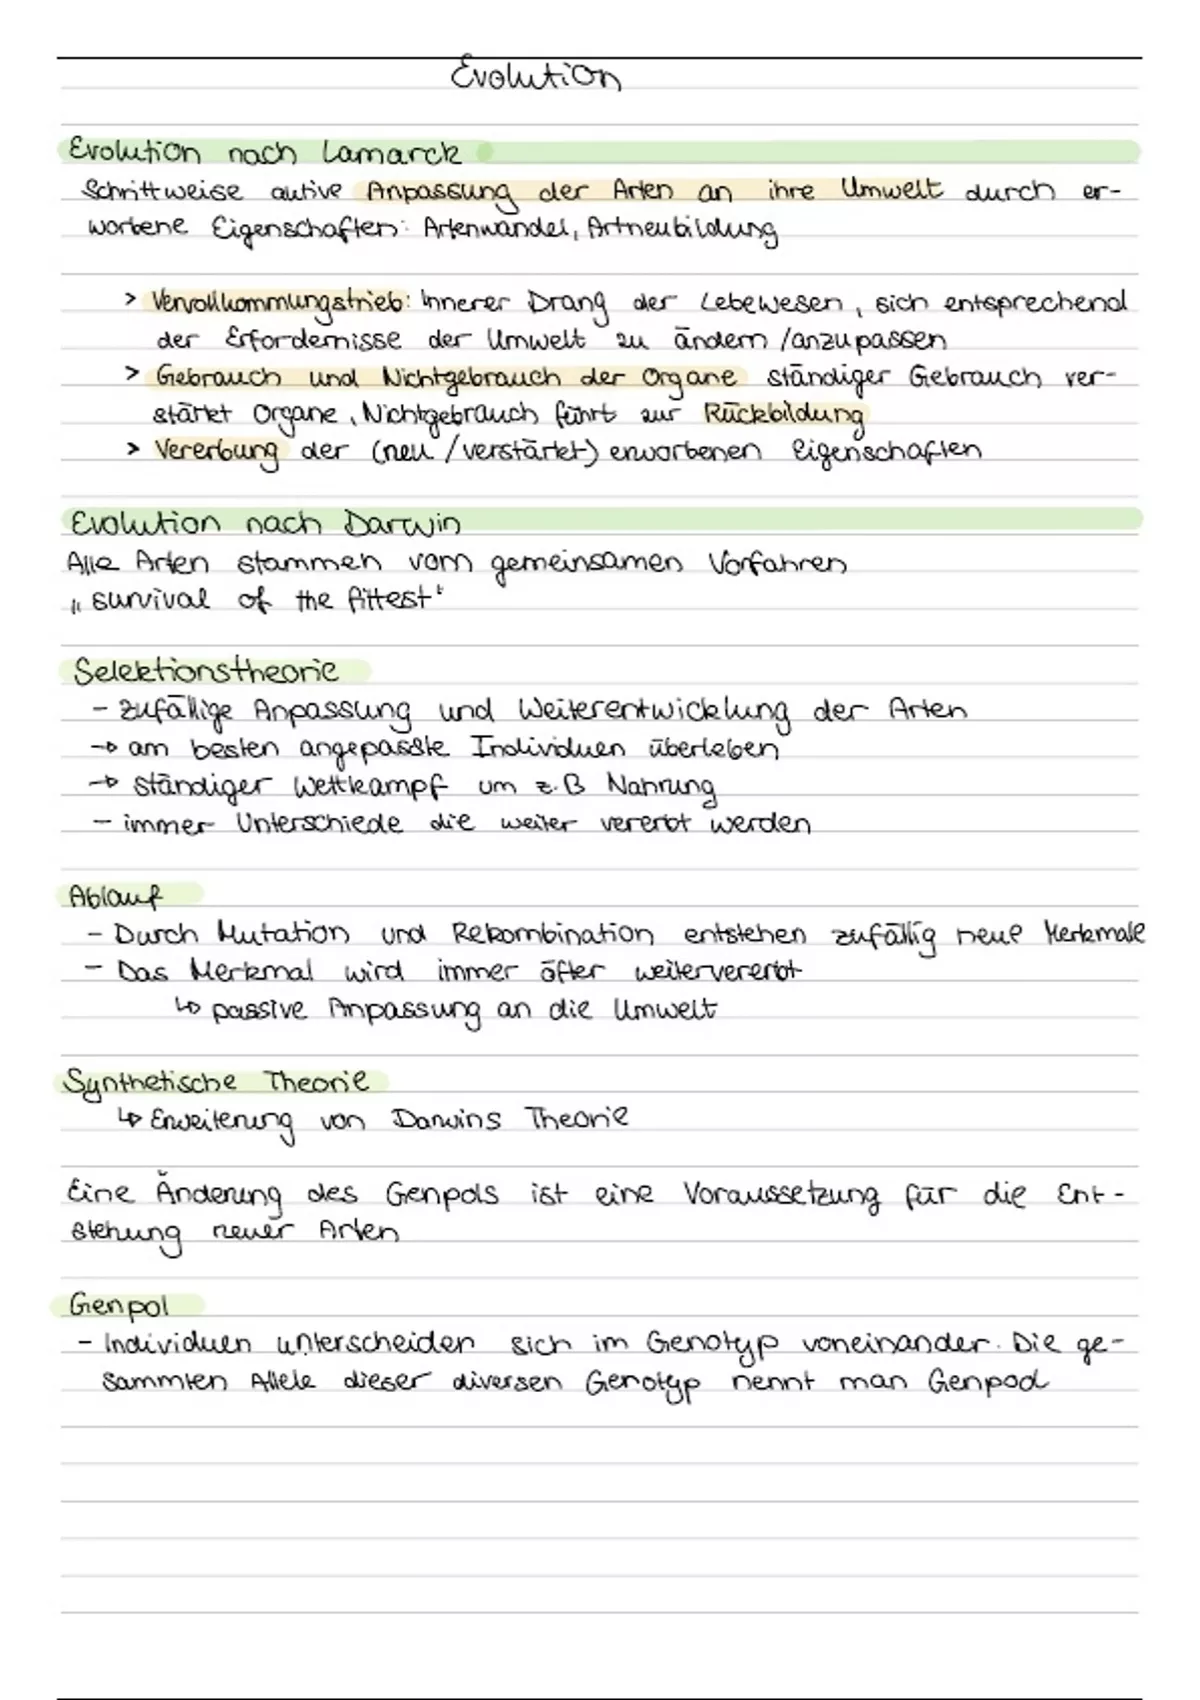 Evolution
Evolution nach Lamarck
Schrittweise aktive Anpassung der Arten an ihre Umwelt durch er-
worbene Eigenschaften: Artenwandel, Artneubildung
> Vervollkommnungstrieb: Innerer Drang der Lebewesen, sich entsprechend
der Erfordernisse der Umwelt zu ändern /anzupassen
> Gebrauch und Nichtgebrauch der Organe ständiger Gebrauch ver-
stärkt Organe, Nichtgebrauch führt zur Rückbildung
> Vererbung der (neu /verstärkt) erworbenen Eigenschaften
Evolution nach Darwin
Alle Arten stammen vom gemeinsamen Vorfahren
„survival of the fittest“
Selektionstheorie
- zufällige Anpassung und Weiterentwicklung der Arten
→ am besten angepasste Individuen überleben
→ ständiger Wettkampf um z.B Nahrung
- immer Unterschiede die weiter vererbt werden
Ablauf
- Durch Mutation und Rekombination entstehen zufällig neue Merkmale
- Das Merkmal wird immer öfter weitervererbt
↳ passive Anpassung an die Umwelt
Synthetische Theorie
↳ Erweiterung von Darwins Theorie
Eine Änderung des Genpols ist eine Voraussetzung für die Ent-
stehung neuer Arten
Genpol
- Individuen unterscheiden sich im Genotyp voneinander. Die ge-
sammten Allele dieser diversen Genotyp nennt man Genpool